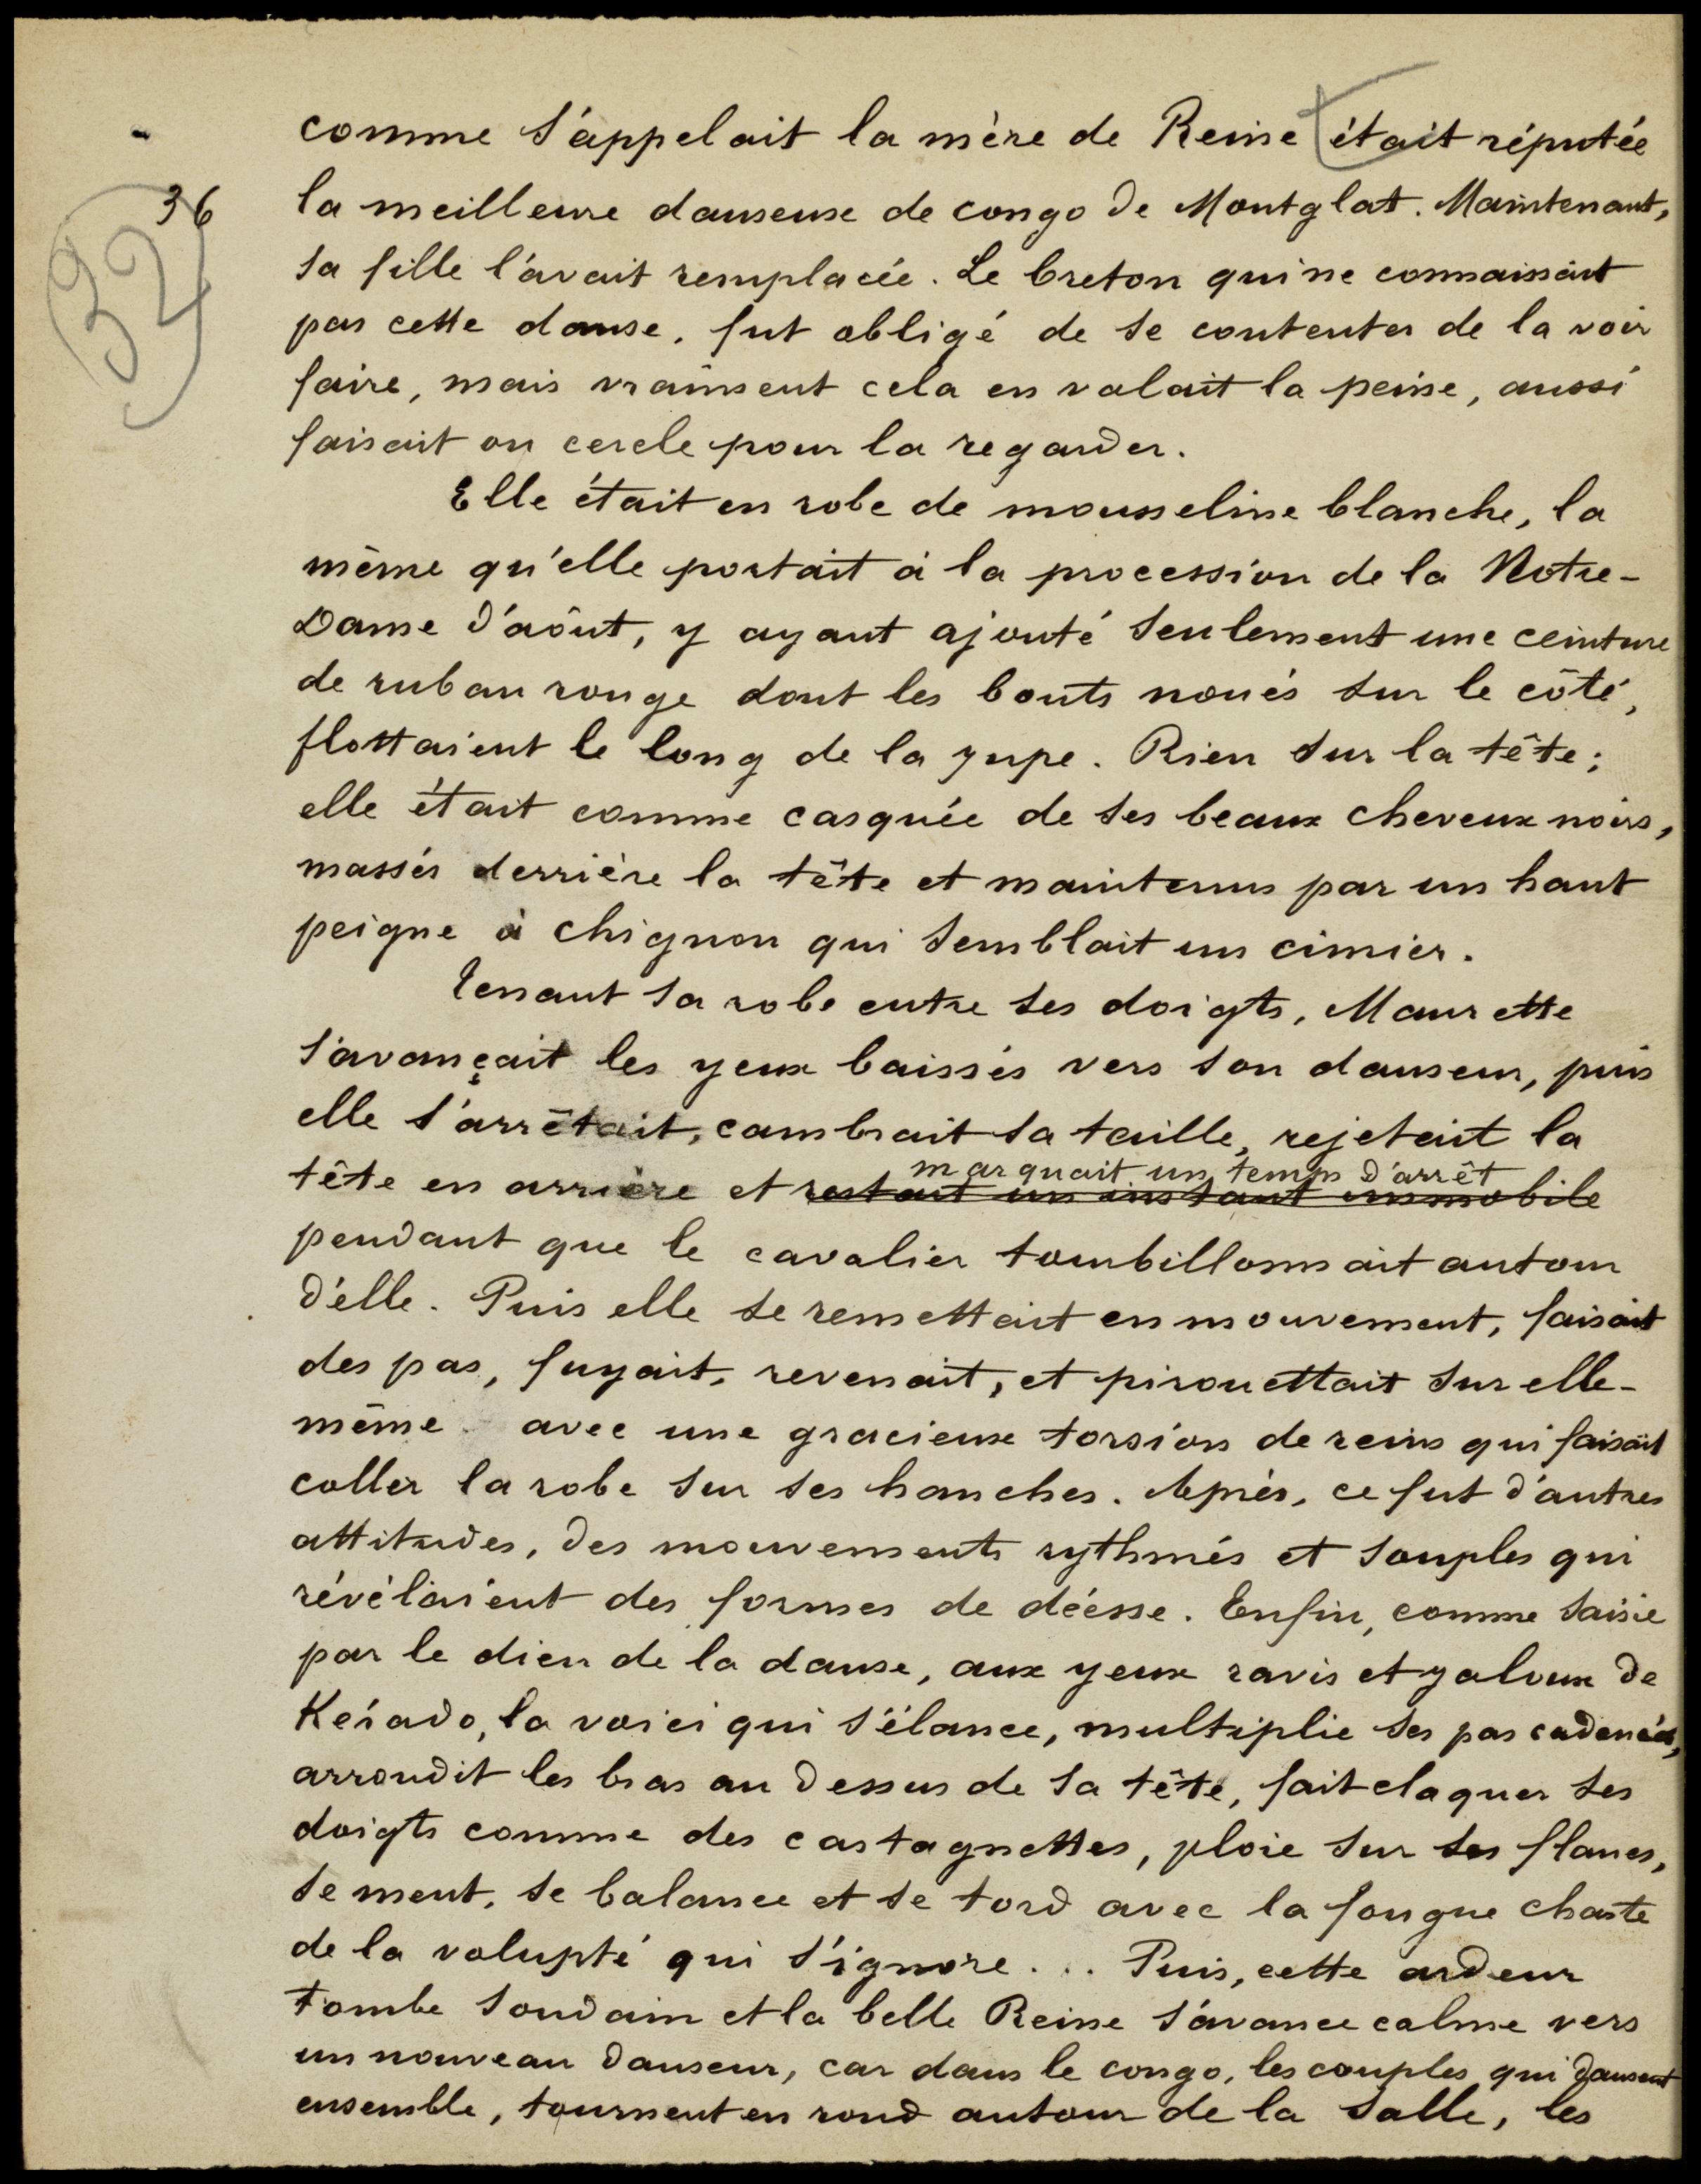 comme s'appelait la mère de Reine était réputée
36
32
la meilleure danseuse de congo de Montglat. Maintenant,
sa fille l'avait remplacée. Le breton qui ne connaissait
pas cette danse, fut obligé de se contenter de la voir
faire, mais vraiment cela en valait la peine, aussi
faisait on cercle pour la regarder.
Elle était en robe de mousseline blanche, la
même qu'elle portait à la procession de la Notre-
Dame d'août, y ayant ajouté seulement une ceinture
de ruban rouge dont les bouts noués sur le côté,
flottaient le long de la jupe. Rien sur la tête;
elle était comme casquée de ses beaux cheveux noirs,
massés derrière la tête et maintenus par un haut
peigne à chignon qui semblait un cimier.
Tenant sa robe entre ses doigts, Maurette
s'avançait les yeux baissés vers son danseur, puis
elle s'arrêtait, cambrait sa taille, rejetait la
marquait un temps d'arrêt
tête en arrière et restait un instant immobile
pendant que le cavalier tourbillonnait autour
d'elle. Puis elle se remettait en mouvement, faisait
des pas, fuyait, revenait, et pirouettait sur elle-
même avec une gracieuse torsion de reins qui faisait
coller la robe sur ses hanches. Après, ce fut d'autres
attitudes, des mouvements rythmés et souples qui
révélaient des formes de déesse. Enfin, comme saisie
par le dieu de la danse, aux yeux ravis et jaloux de
Kérado, la voici qui s'élance, multiplie ses pas cadencés,
arrondit les bras au dessus de sa tête, fait claquer ses
doigts comme des castagnettes, ploie sur ses flancs,
se meut, se balance et se tord avec la fougue chaste
de la volupté qui s'ignore... Puis, cette ardeur
tombe soudain et la belle Reine s'avance calme vers
un nouveau danseur, car dans le congo, les couples qui dansent
ensemble, tournent en rond autour de la salle, les